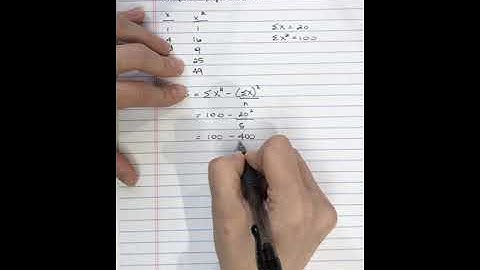 x x²
1 1
4 16
9
25
49
Σx = 20
Σx² = 100
= Σx² - (Σx)²
n
= 100 - 20²
5
= 100 - 400